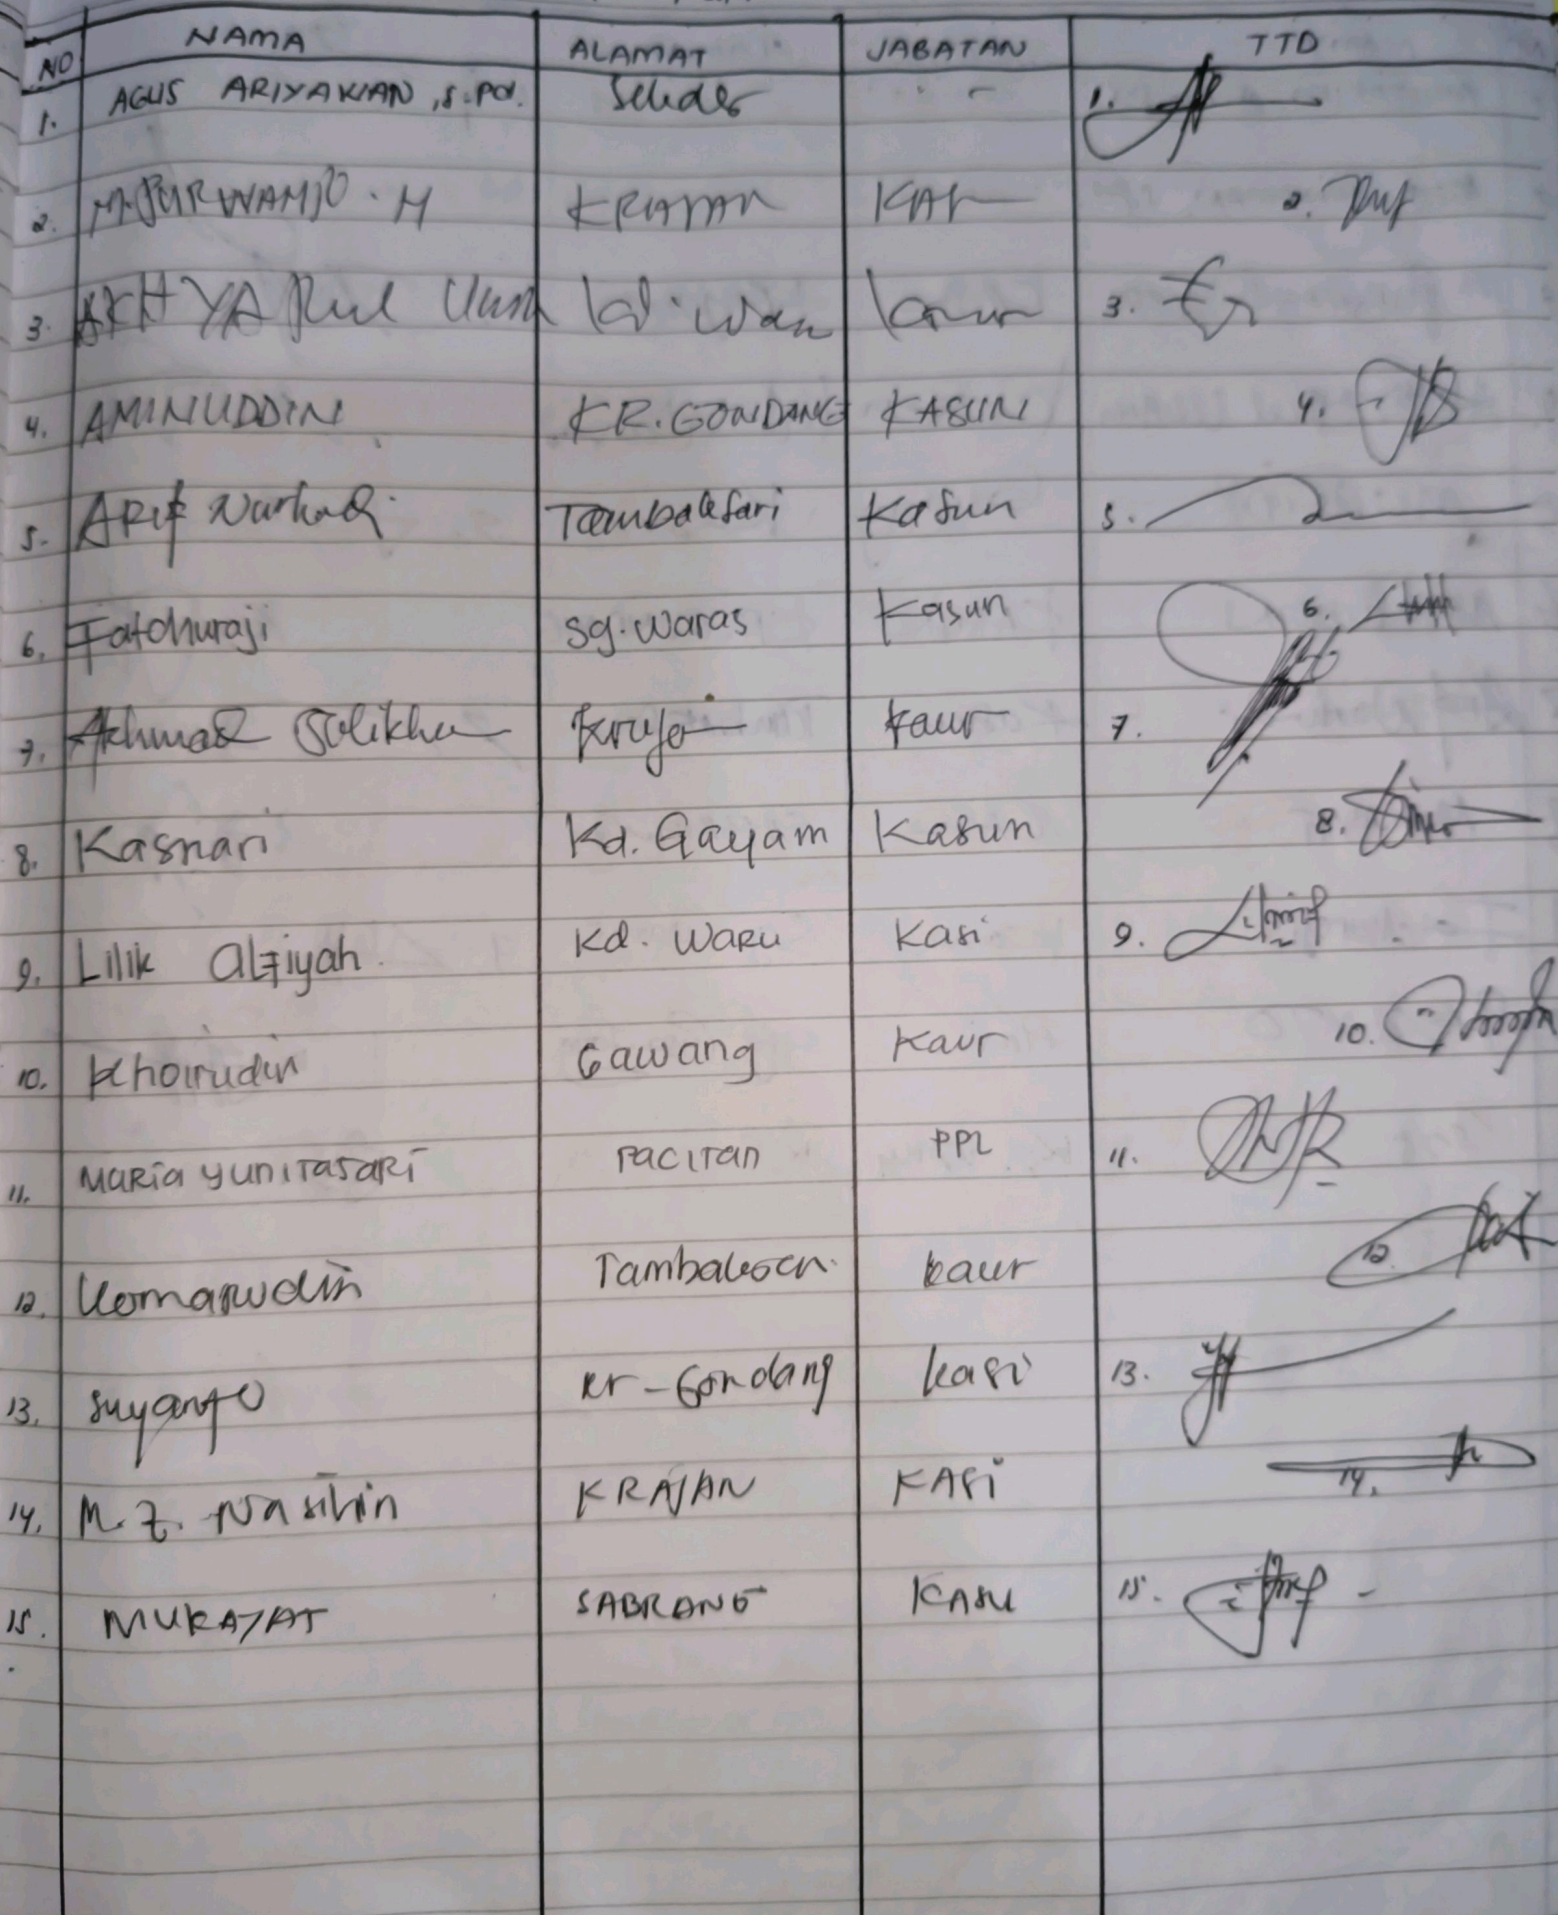 NO NAMA ALAMAT JABATAN TTD
1. AGUS ARIYAWAN, S.Pd. Sekdes - 1.
2. M. PURWANTO. H KRAJAN KAUR 2.
3. AKHYARUL Kd. Waru Kaur 3.
4. AMINUDDIN KR. GONDANG KASUN 4.
5. ARIF Nurhadi Tambaksari Kasun 5.
6. Fatchuroji Sg. Waras Kasun 6.
7. Akhmad Solikhin Krajan Kaur 7.
8. Kasnari Kd. Gayam Kasun 8.
9. Lilik Alfiyah Kd. Waru Kasi 9.
10. Khoirudin Gawang Kaur 10.
11. Maria Yunitasari Pacitan PPL 11.
12. Komarudin Tambaksari kaur 12.
13. Suyanto Kr-Gondang kasi 13.
14. M. Z. Nasihin KRAJAN KASI 14.
15. MUKAYAT SABRANG KASU 15.